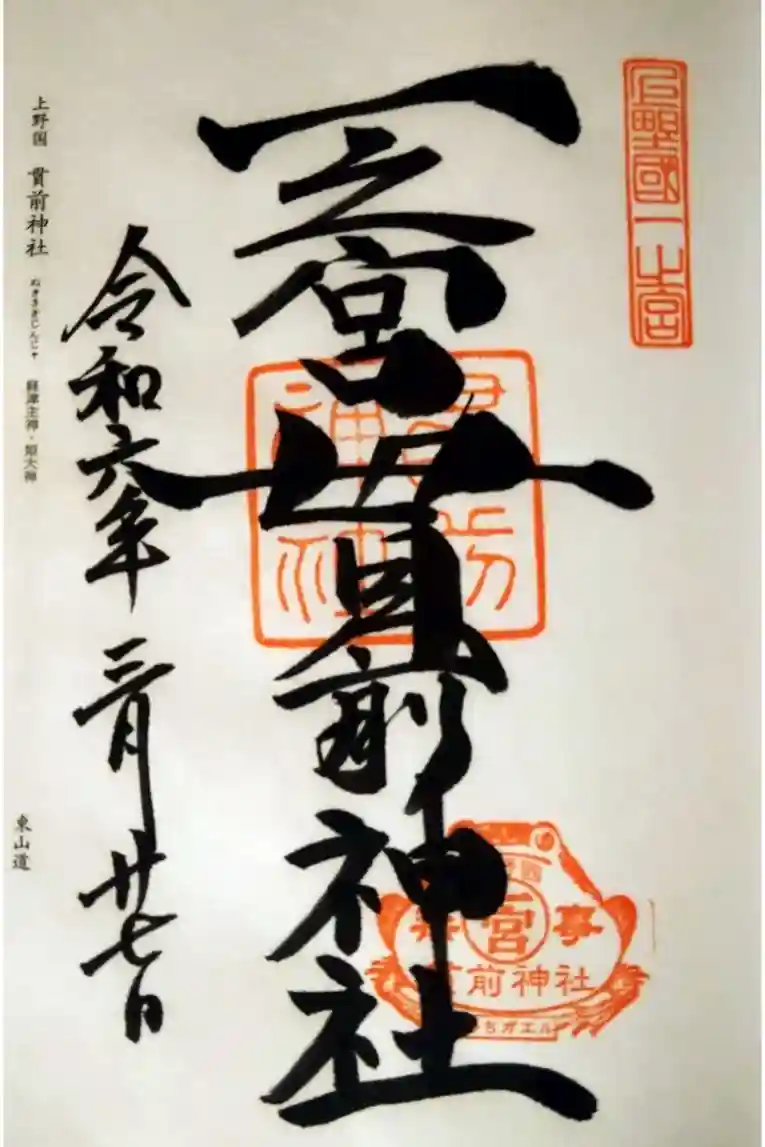 上野國一之宮
一之宮貫前神社
貫前神社
無事
一宮
貫前神社
ちガエル
令和六年三月廿七日
上野国 貫前神社 ぬきさきじんじゃ 経津主神・姫大神
東山道